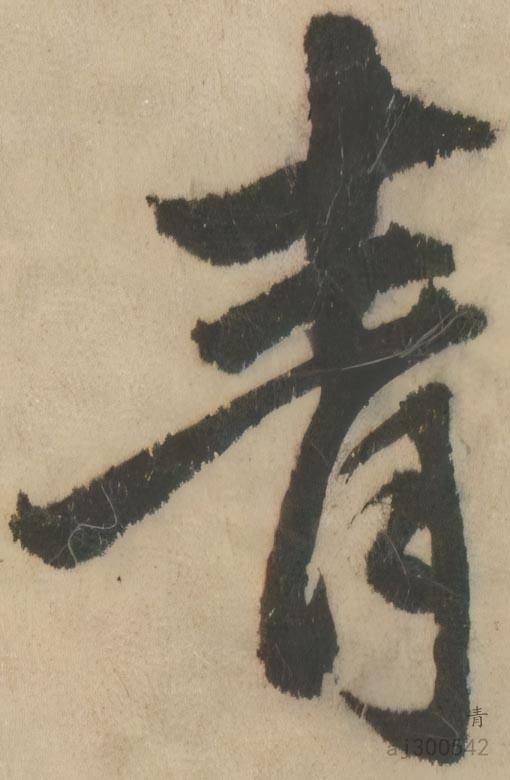 青
青
aj300542